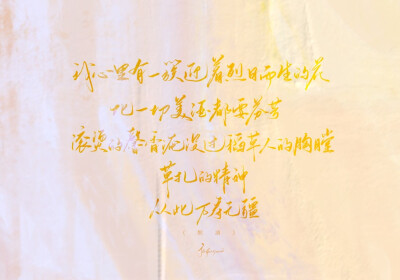 我心里有一簇迎着烈日而生的花
比一切美酒都要芬芳
滚烫的馨香淹没过稻草人的胸膛
草扎的精神
从此万寿无疆